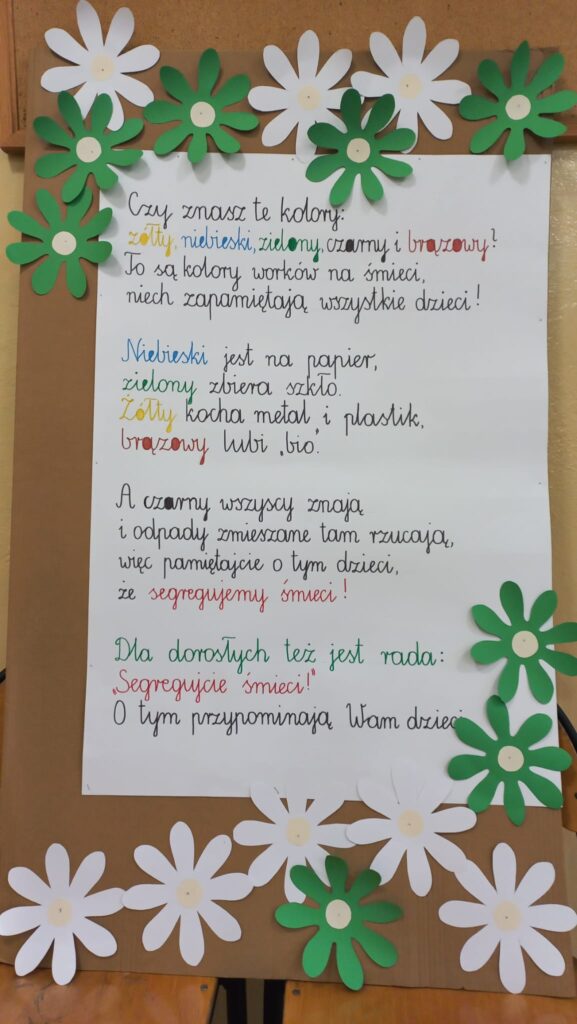 Czy znasz te kolory:
żółty, niebieski, zielony, czarny i brązowy?
To są kolory worków na śmieci,
niech zapamiętają wszystkie dzieci!
Niebieski jest na papier,
zielony zbiera szkło.
Żółty kocha metal i plastik,
brązowy lubi „bio”.
A czarny wszyscy znają
i odpady zmieszane tam rzucają,
więc pamiętajcie o tym dzieci,
że segregujemy śmieci!
Dla dorosłych też jest rada:
„Segregujcie śmieci!”
O tym przypominają Wam dzieci